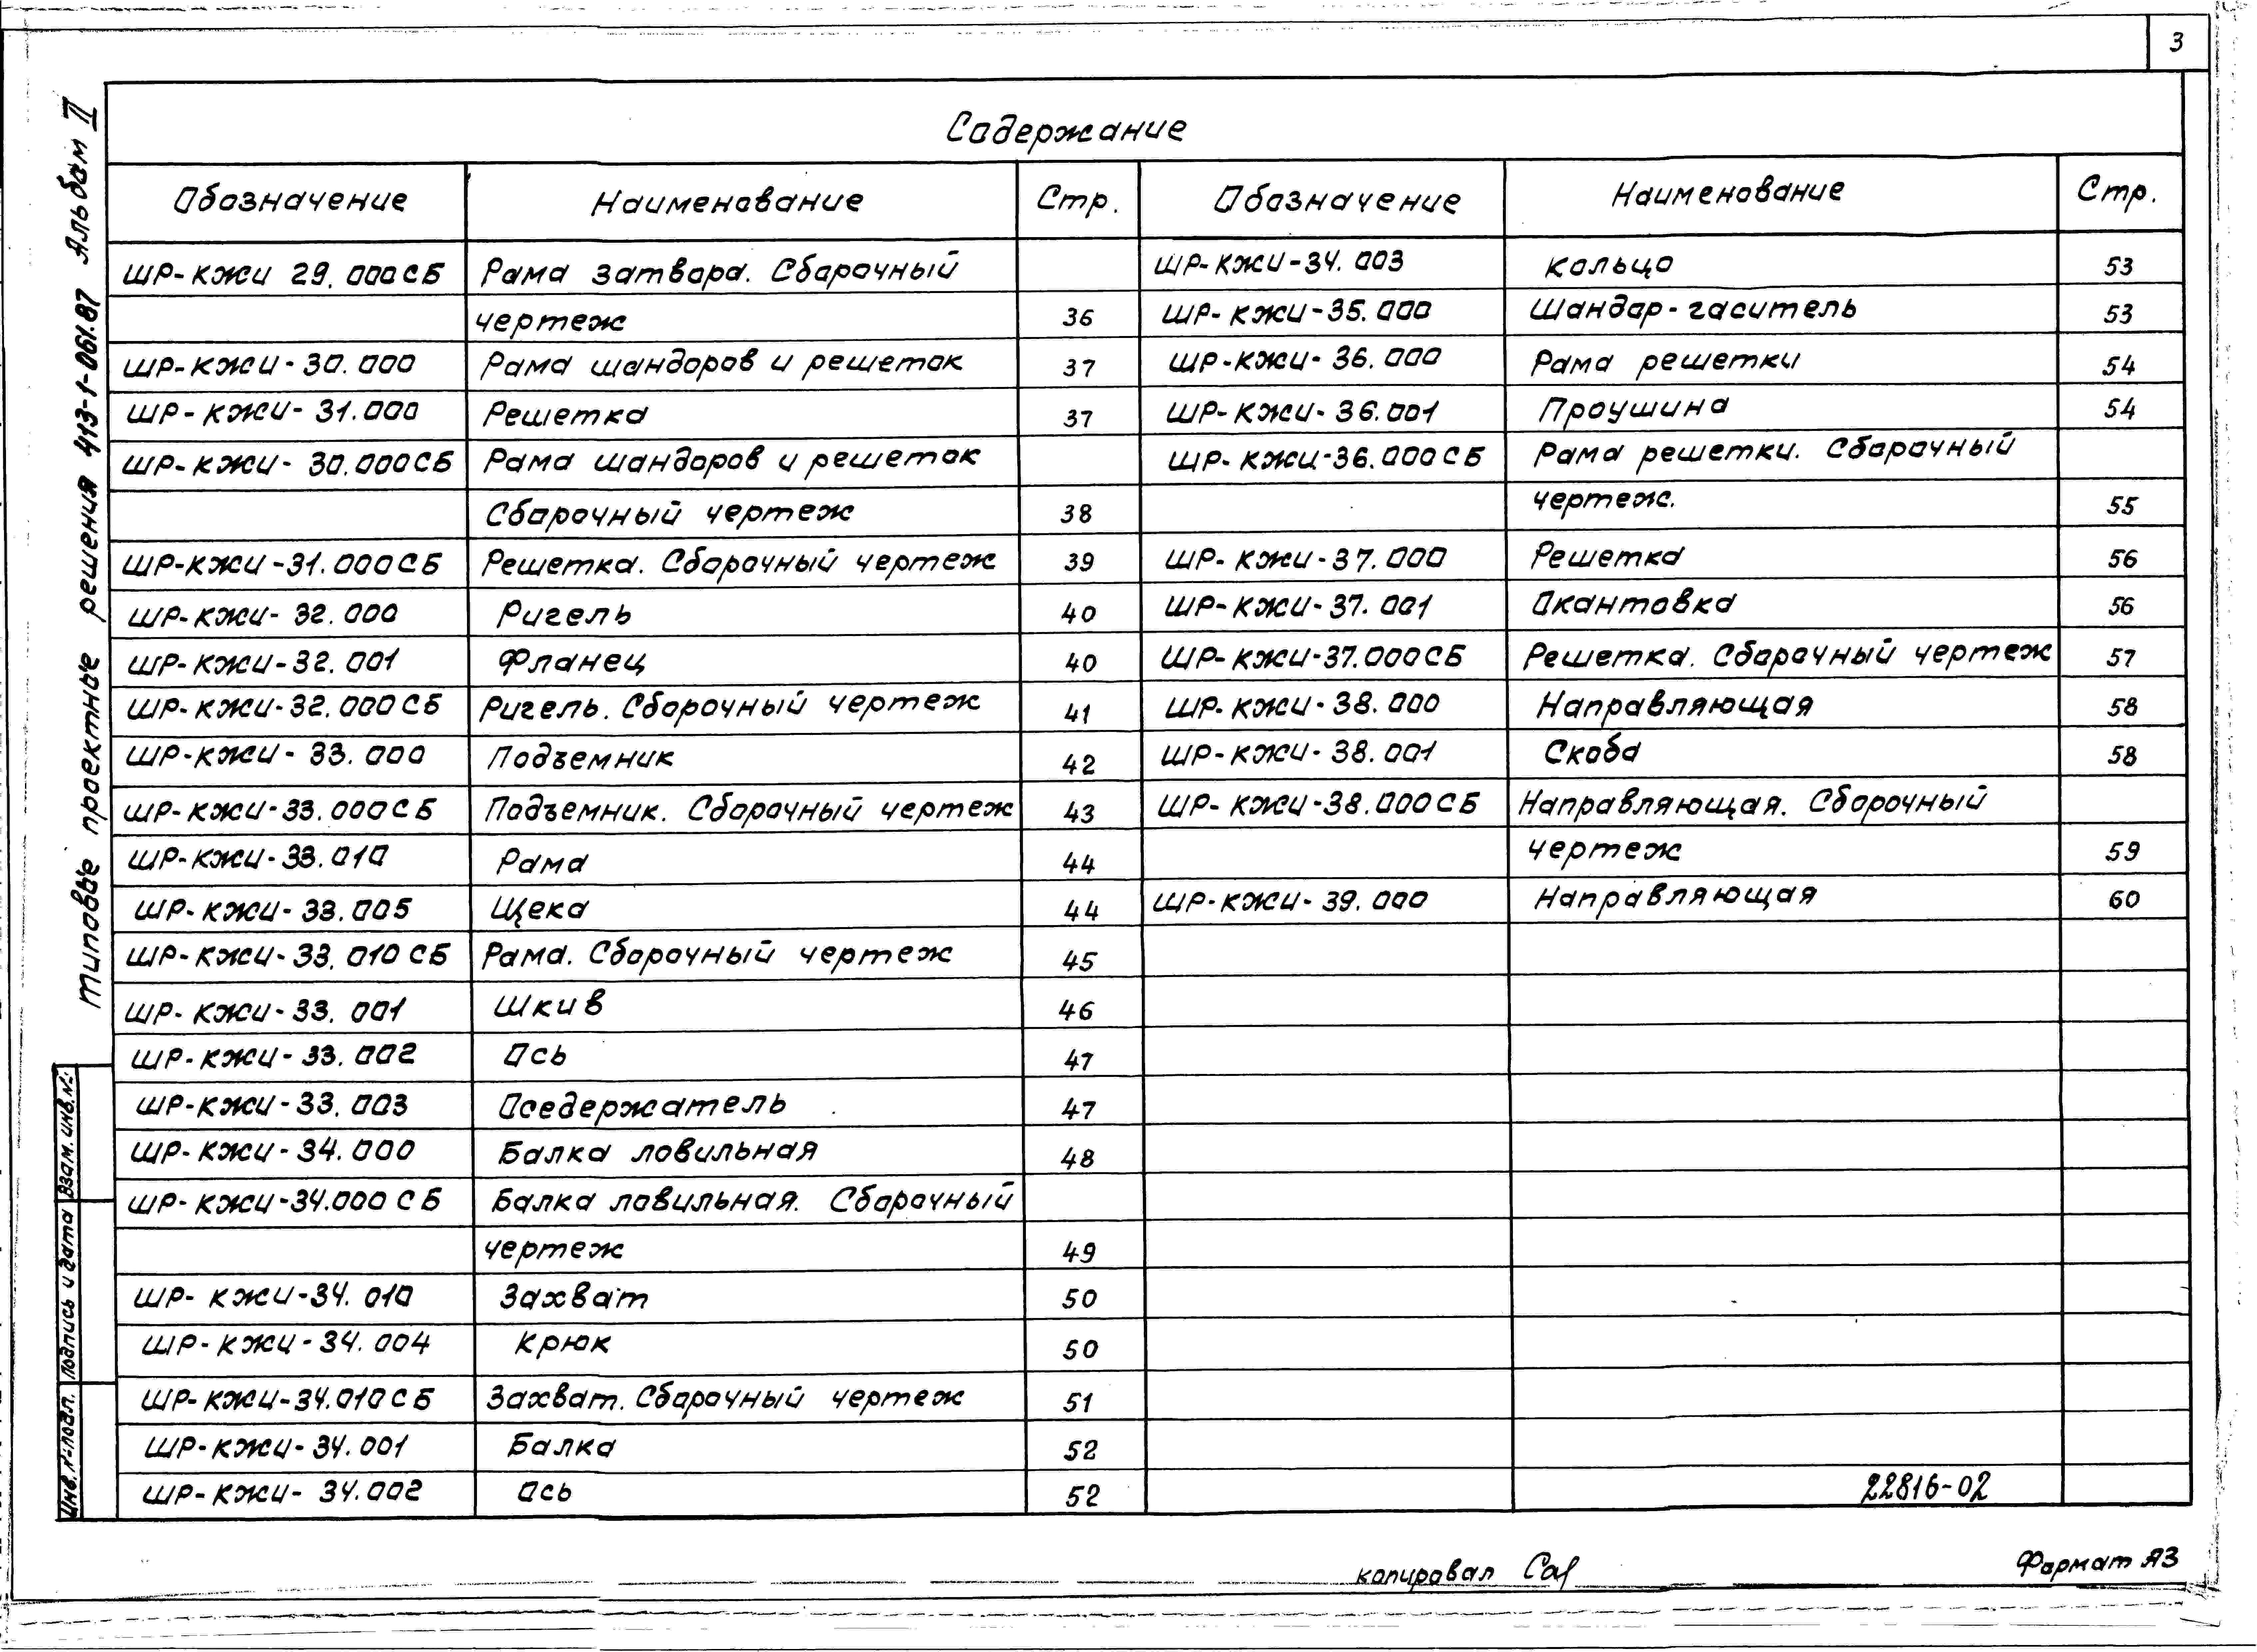 3
Типовые проектные решения 413-1-061.87 Альбом II
Содержание
Обозначение Наименование Стр.
ШР-КЖИ 29.000СБ Рама затвора. Сборочный
чертеж 36
ШР-КЖИ-30.000 Рама шандоров и решеток 37
ШР-КЖИ-31.000 Решетка 37
ШР-КЖИ-30.000СБ Рама шандоров и решеток
Сборочный чертеж 38
ШР-КЖИ-31.000СБ Решетка. Сборочный чертеж 39
ШР-КЖИ-32.000 Ригель 40
ШР-КЖИ-32.001 Фланец 40
ШР-КЖИ-32.000СБ Ригель. Сборочный чертеж 41
ШР-КЖИ-33.000 Подъемник 42
ШР-КЖИ-33.000СБ Подъемник. Сборочный чертеж 43
ШР-КЖИ-33.010 Рама 44
ШР-КЖИ-33.005 Щека 44
ШР-КЖИ-33.010 СБ Рама. Сборочный чертеж 45
ШР-КЖИ-33.001 Шкив 46
ШР-КЖИ-33.002 Ось 47
ШР-КЖИ-33.003 Оседержатель 47
ШР-КЖИ-34.000 Балка ловильная 48
ШР-КЖИ-34.000 СБ Балка ловильная. Сборочный
чертеж 49
ШР-КЖИ-34.010 Захват 50
ШР-КЖИ-34.004 Крюк 50
ШР-КЖИ-34.010СБ Захват. Сборочный чертеж 51
ШР-КЖИ-34.001 Балка 52
ШР-КЖИ-34.002 Ось 52
Обозначение Наименование Стр.
ШР-КЖИ-34.003 Кольцо 53
ШР-КЖИ-35.000 Шандор-гаситель 53
ШР-КЖИ-36.000 Рама решетки 54
ШР-КЖИ-36.001 Проушина 54
ШР-КЖИ-36.000СБ Рама решетки. Сборочный
чертеж. 55
ШР-КЖИ-37.000 Решетка 56
ШР-КЖИ-37.001 Окантовка 56
ШР-КЖИ-37.000СБ Решетка. Сборочный чертеж 57
ШР-КЖИ-38.000 Направляющая 58
ШР-КЖИ-38.001 Скоба 58
ШР-КЖИ-38.000СБ Направляющая. Сборочный
чертеж 59
ШР-КЖИ-39.000 Направляющая 60
22816-02
Взам. инв. №
Подпись и дата
Инв. № подл.
копировал
Формат А3